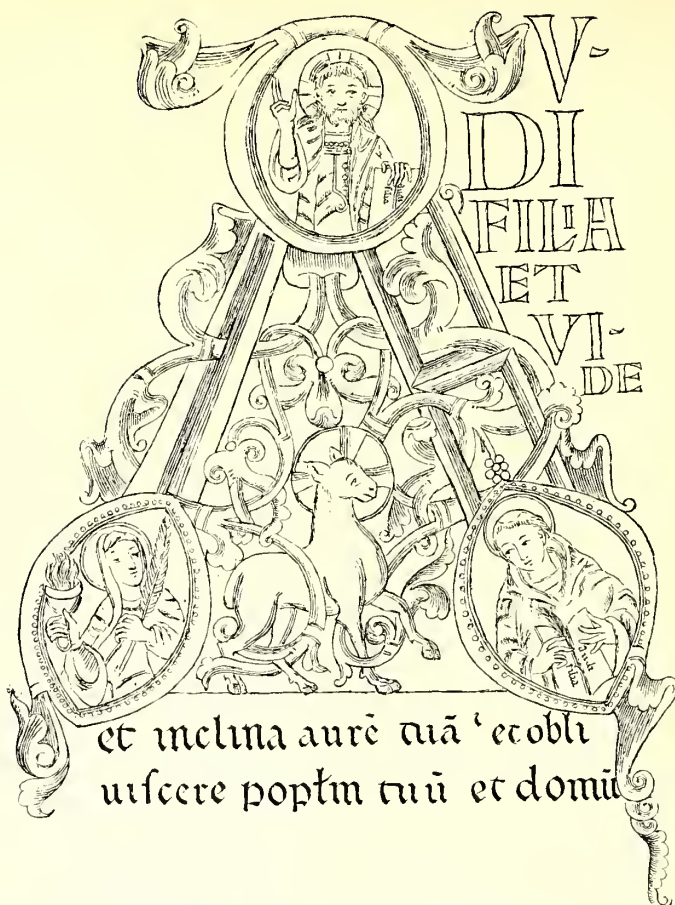 AV-
DI
FILIA
ET
VI-
DE
et inclina aurē tuā ʿ et obli
uiſcere popłm tuū et domū
Audi
filia